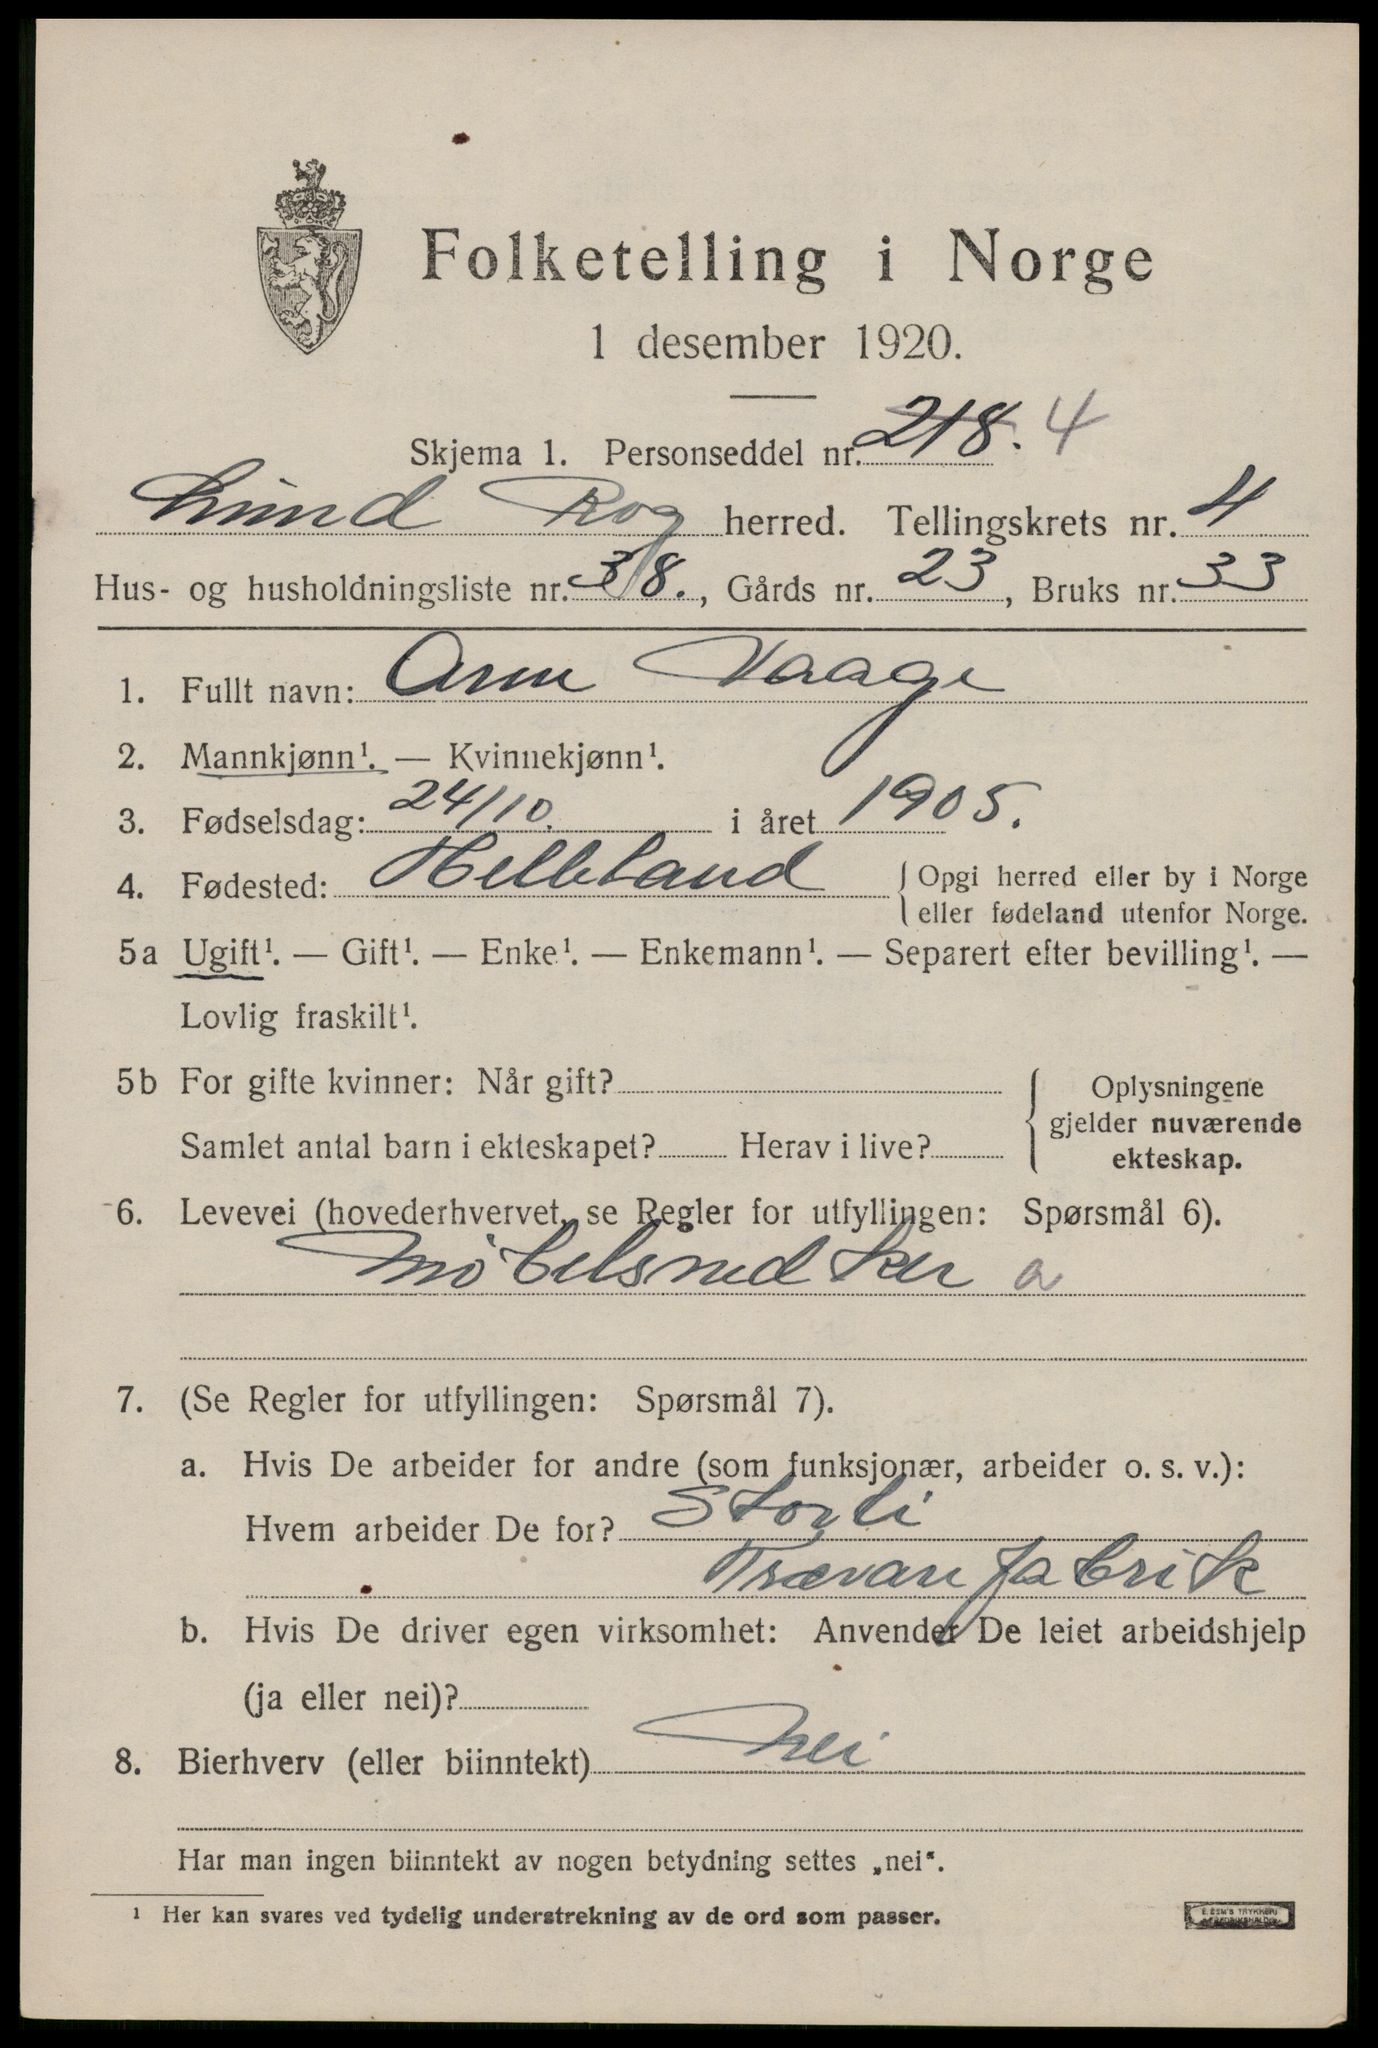 Folketelling i Norge
1 desember 1920.
Skjema 1. Personseddel nr. 218. 4
Lund Rog herred. Tellingskrets nr. 4
Hus- og husholdningsliste nr. 38., Gårds nr. 23, Bruks nr. 33
1. Fullt navn: Arne Vaage
2. Mannkjønn¹. — Kvinnekjønn¹.
3. Fødselsdag: 24/10. i året 1905.
4. Fødested: Helleland { Opgi herred eller by i Norge
eller fødeland utenfor Norge.
5a Ugift¹. — Gift¹. — Enke¹. — Enkemann¹. — Separert efter bevilling¹. —
Lovlig fraskilt¹.
5b For gifte kvinner: Når gift?
Samlet antal barn i ekteskapet? Herav i live?
Oplysningene
gjelder nuværende
ekteskap.
6. Levevei (hovederhvervet, se Regler for utfyllingen: Spørsmål 6).
Møbelsnedker a
7. (Se Regler for utfyllingen: Spørsmål 7).
a. Hvis De arbeider for andre (som funksjonær, arbeider o. s. v.):
Hvem arbeider De for? Storli
Trævarefabrik
b. Hvis De driver egen virksomhet: Anvender De leiet arbeidshjelp
(ja eller nei)?
8. Bierhverv (eller biinntekt) Nei
Har man ingen biinntekt av nogen betydning settes „nei".
¹ Her kan svares ved tydelig understrekning av de ord som passer.